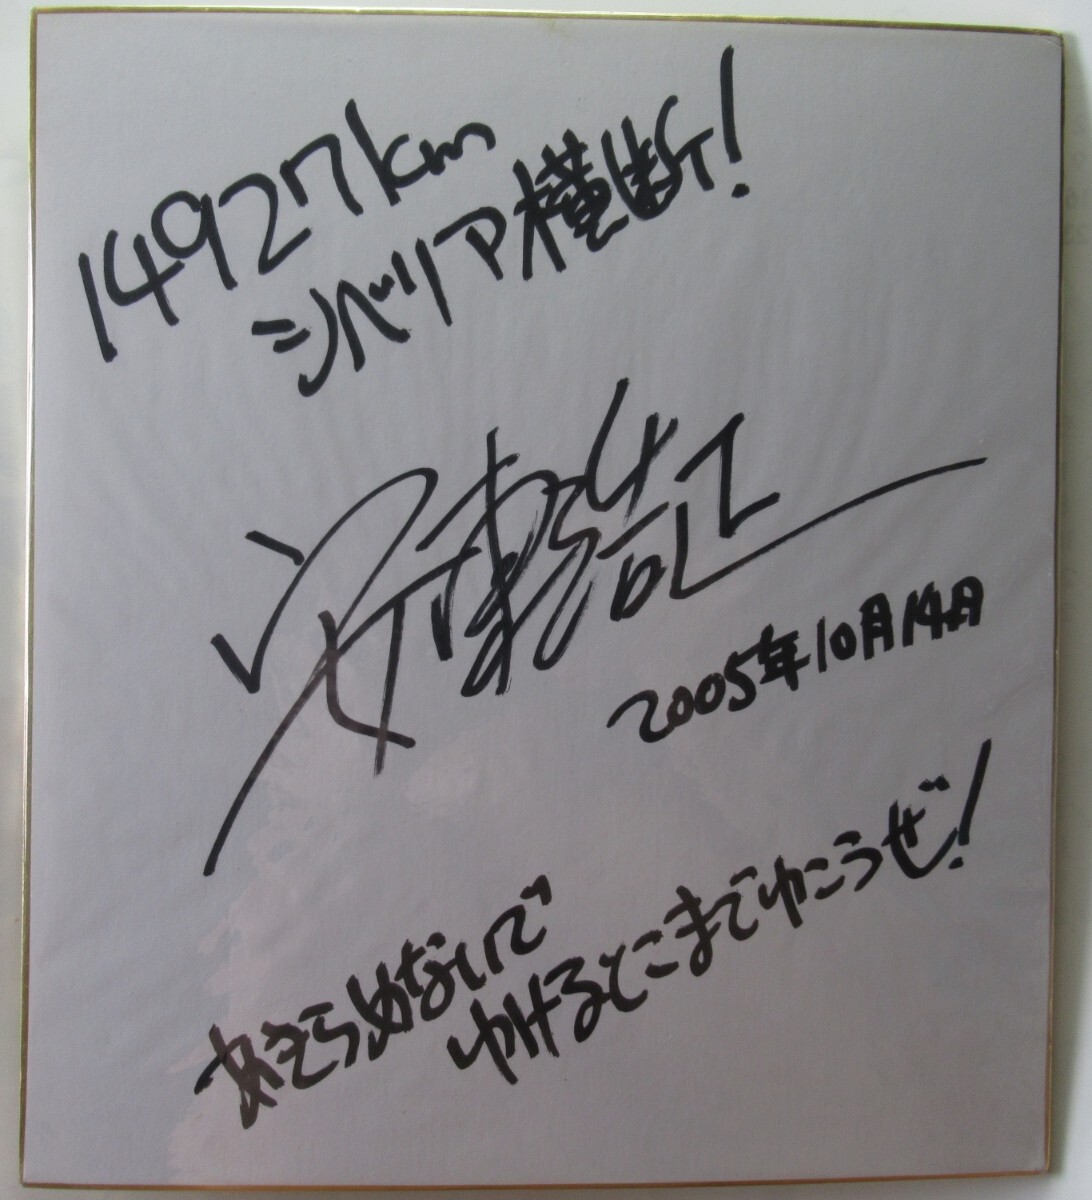 14927km
シベリア横断!
2005年10月14日
あきらめないで
ゆけるとこまでゆこうぜ!